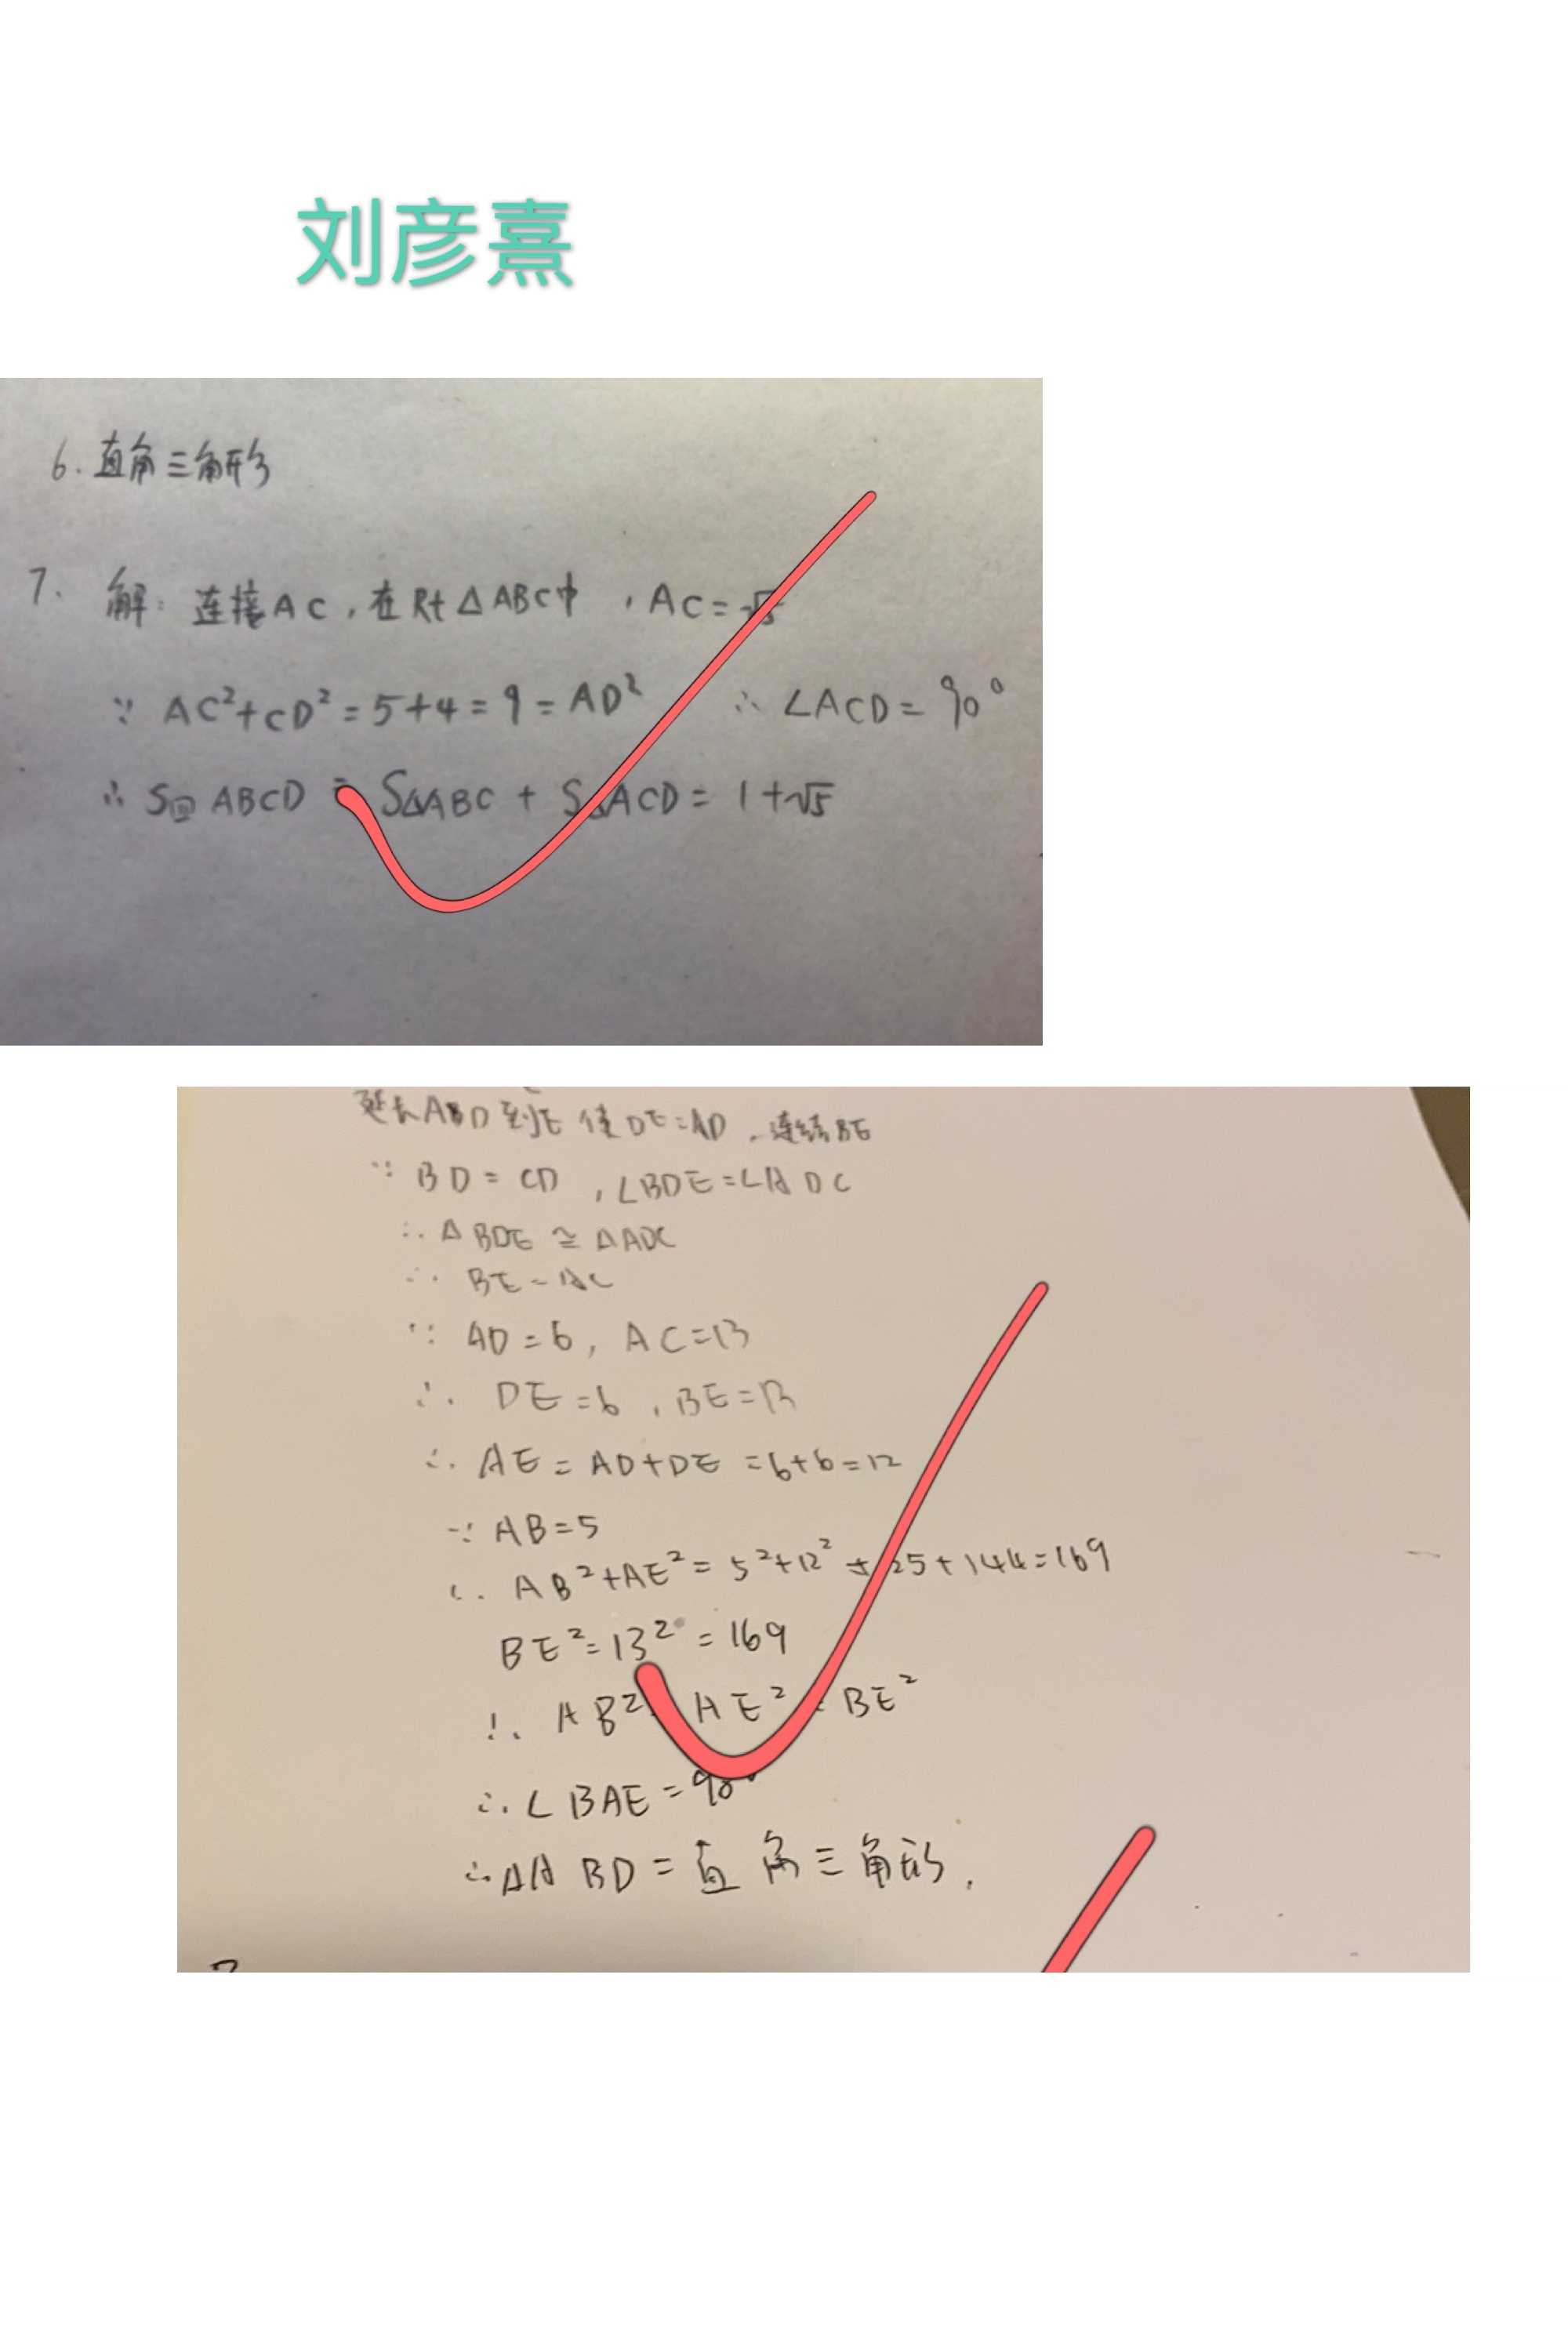 刘彦熹
6. 直角三角形
7. 解: 连接AC, 在Rt△ABC中, AC=√5
∵ AC²+CD²=5+4=9=AD² ∴ ∠ACD=90°
∴ S四ABCD = S△ABC + S△ACD = 1+√5
延长ABD到E 使DE=AD, 连结BE
∵ BD=CD, ∠BDE=∠ADC
∴ △BDE≅△ADC
∴ BE=AC
∵ AD=6, AC=13
∴ DE=6, BE=13
∴ AE=AD+DE=6+6=12
∵ AB=5
∴ AB²+AE²=5²+12²=25+144=169
BE²=13²=169
∴ AB²+AE²=BE²
∴ ∠BAE=90°
∴ △ABD=直角三角形.